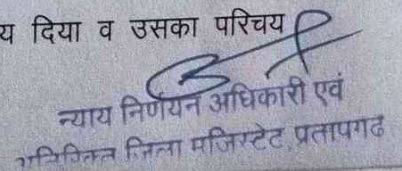 य दिया व उसका परिचय
न्याय निर्णयन अधिकारी एवं
अतिरिक्त जिला मजिस्टेट, प्रतापगढ